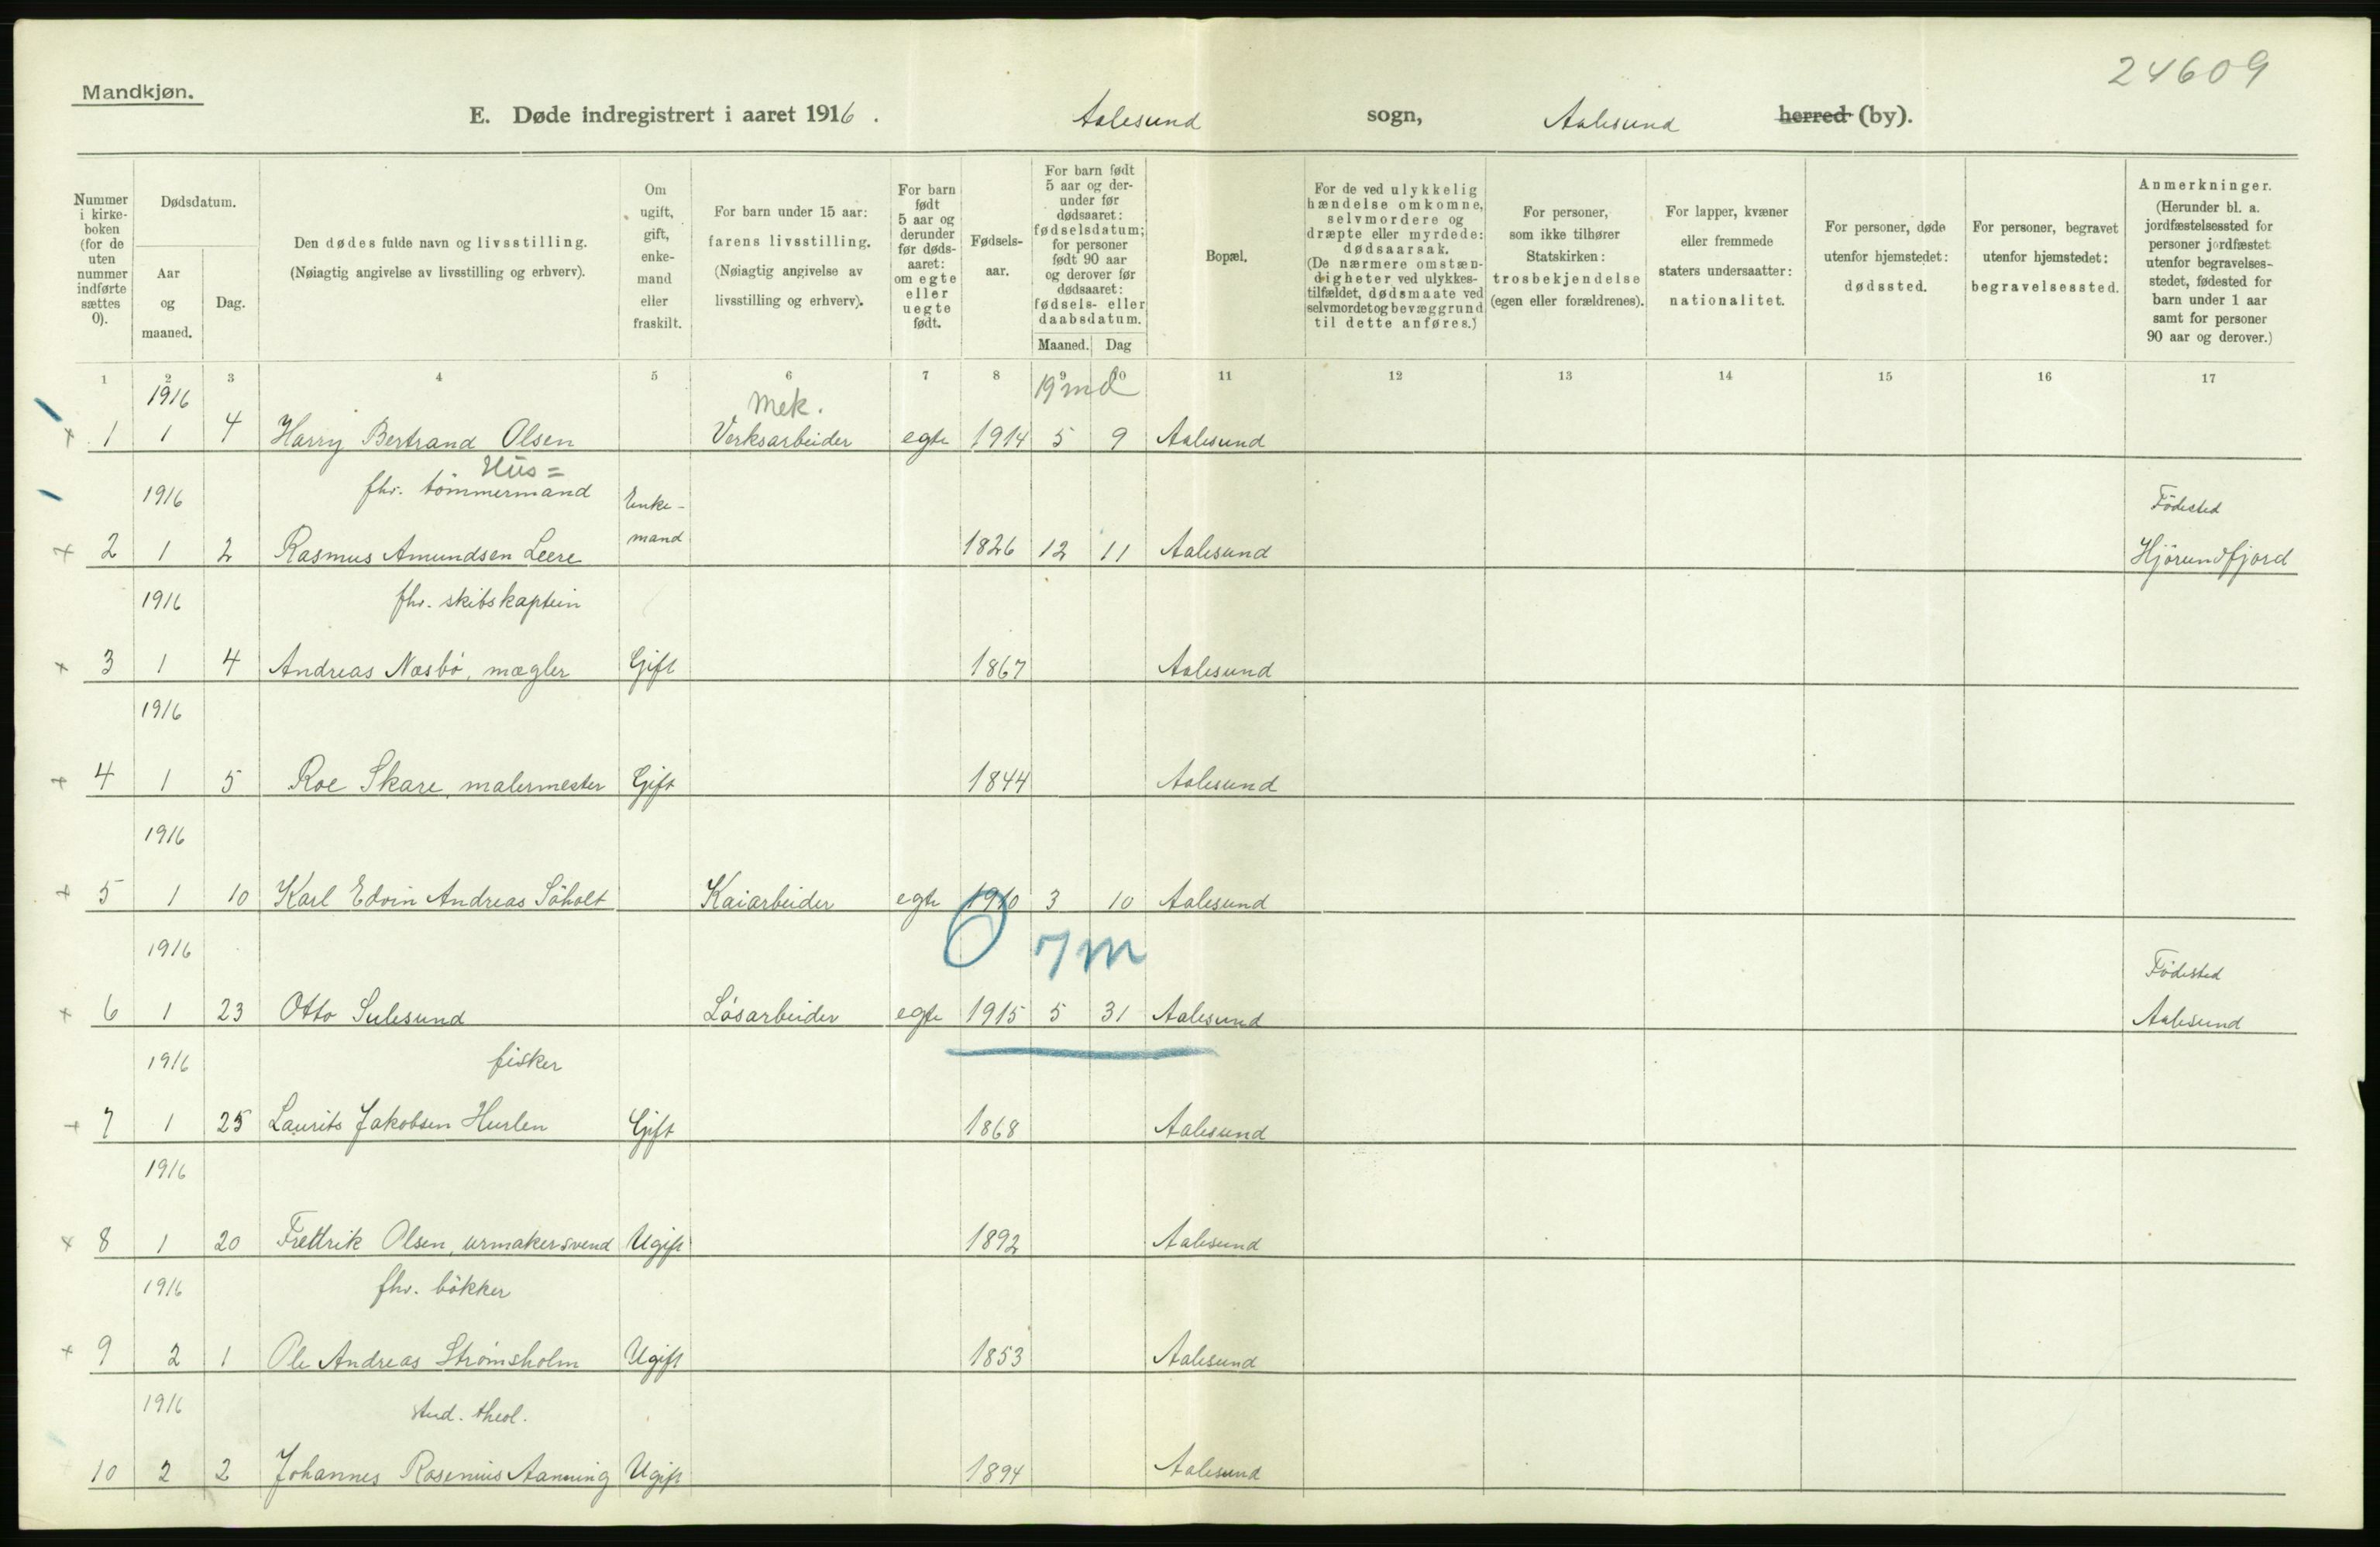 24609
Mandkjøn.
E. Døde indregistrert i aaret 1916. Aalesund sogn, Aalesund herred (by).
Nummer i kirkeboken (for de uten nummer indførte sættes 0).
Dødsdatum.
Aar og maaned.
Dag.
Den dødes fulde navn og livsstilling.
(Nøiagtig angivelse av livsstilling og erhverv).
Om ugift, gift, enkemand eller fraskilt.
For barn under 15 aar: farens livsstilling.
(Nøiagtig angivelse av livsstilling og erhverv).
For barn født 5 aar og derunder før dødsaaret: om egte eller uegte født.
Fødselsaar.
For barn født 5 aar og derunder før dødsaaret: fødselsdatum; for personer født 90 aar og derover før dødsaaret: fødsels- eller daabsdatum.
Maaned. Dag
Bopæl.
For de ved ulykkelig hændelse omkomne, selvmordere og dræpte eller myrdede: dødsaarsak.
(De nærmere omstændigheter ved ulykkestilfældet, dødsmaate ved selvmordet og bevæggrund til dette anføres.)
For personer, som ikke tilhører Statskirken: trosbekjendelse (egen eller forældrenes).
For lapper, kvæner eller fremmede staters undersaatter: nationalitet.
For personer, døde utenfor hjemstedet: dødssted.
For personer, begravet utenfor hjemstedet: begravelsessted.
Anmerkninger.
(Herunder bl. a. jordfæstelsessted for personer jordfæstet utenfor begravelsesstedet, fødested for barn under 1 aar samt for personer 90 aar og derover.)
1 2 3 4 5 6 7 8 9 10 11 12 13 14 15 16 17
1916 Mek. 19 md
1 1 4 Harry Bertrand Olsen Verksarbeider egte 1914 5 9 Aalesund
Hus=
1916 fhv. tømmermand Enke- Födested
2 1 2 Rasmus Amundsen Leere mand 1826 12 11 Aalesund Hjörundfjord
1916 fhv. skibskaptein
3 1 4 Andreas Næsbö, mægler Gift 1867 Aalesund
1916
4 1 5 Roe Skare, malermester Gift 1844 Aalesund
1916
5 1 10 Karl Edvin Andreas Söholt Kaiarbeider egte 1910 3 10 Aalesund
1916 0 7 m Födested
6 1 23 Otto Sulesund Lösarbeider egte 1915 5 31 Aalesund Aalesund
1916 fisker
7 1 25 Laurits Jakobsen Hurlen Gift 1868 Aalesund
1916
8 1 20 Fredrik Olsen, urmakersvend Ugift 1892 Aalesund
1916 fhv. bökker
9 2 1 Ole Andreas Strömsholm Ugift 1853 Aalesund
1916 stud. theol.
10 2 2 Johannes Rosenius Aanning Ugift 1894 Aalesund